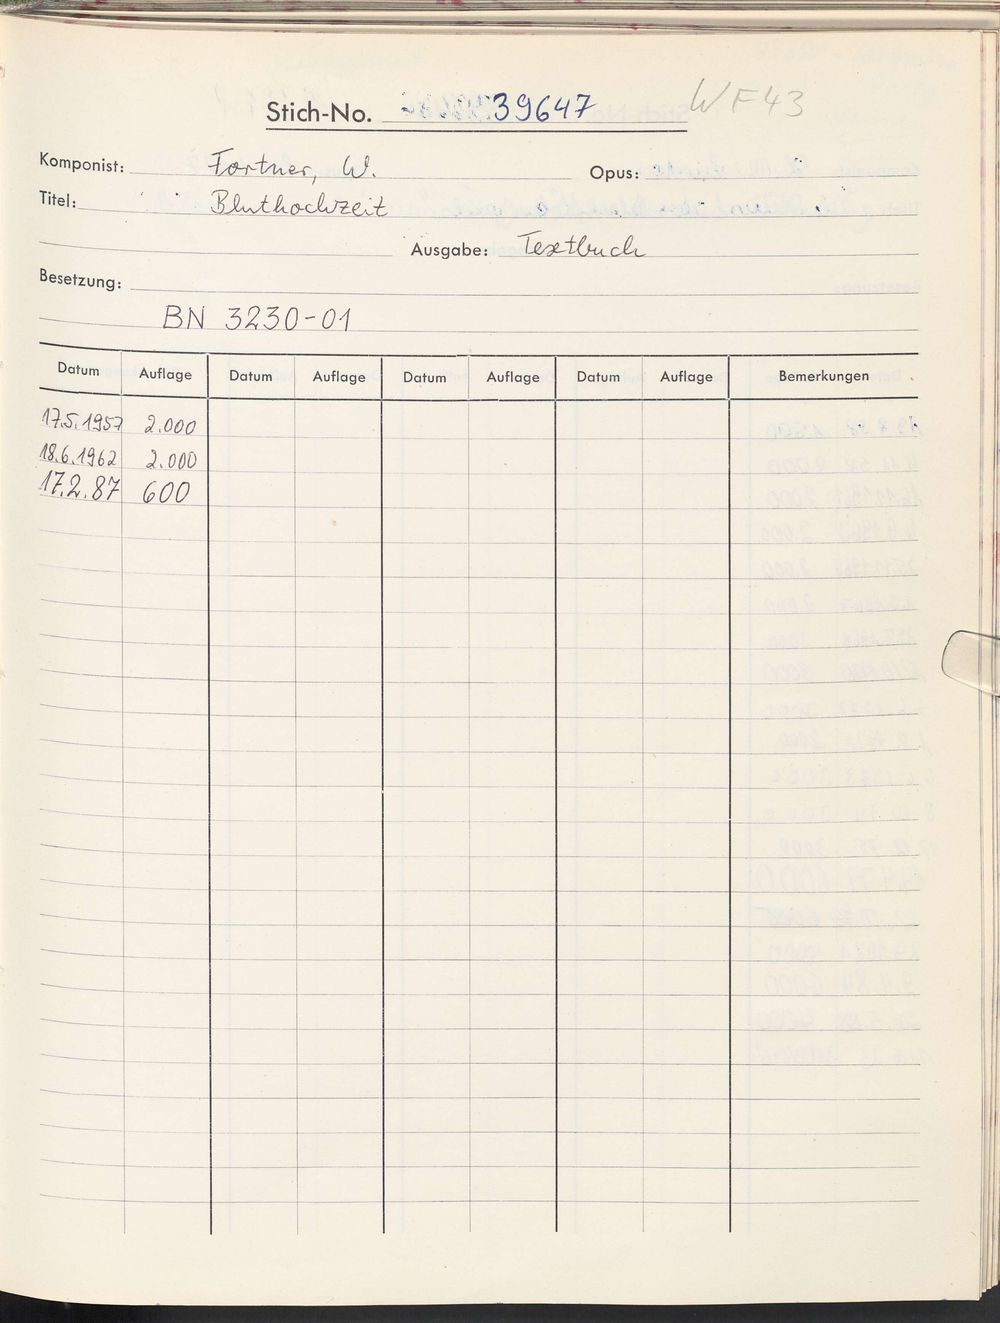 Stich-No. 39647 WF43
Komponist: Fortner, W. Opus:
Titel: Bluthochzeit
Ausgabe: Textbuch
Besetzung:
BN 3230-01
Datum Auflage Datum Auflage Datum Auflage Datum Auflage Bemerkungen
17.5.1957 2.000
18.6.1962 2.000
17.2.87 600